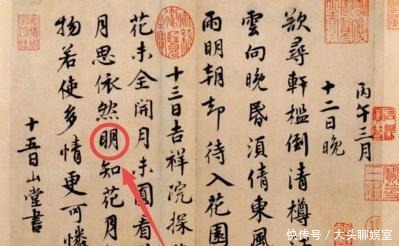 丙午三月
十二日晚
欲尋軒檻倒清樽
雲向晚昏須倩東風
雨明朝却待入花園
十三日吉祥院探
花未全開月未圓看
月思依然明知花月
物若使多情更可憐
十五日山堂書
快传号/大头聊娱室